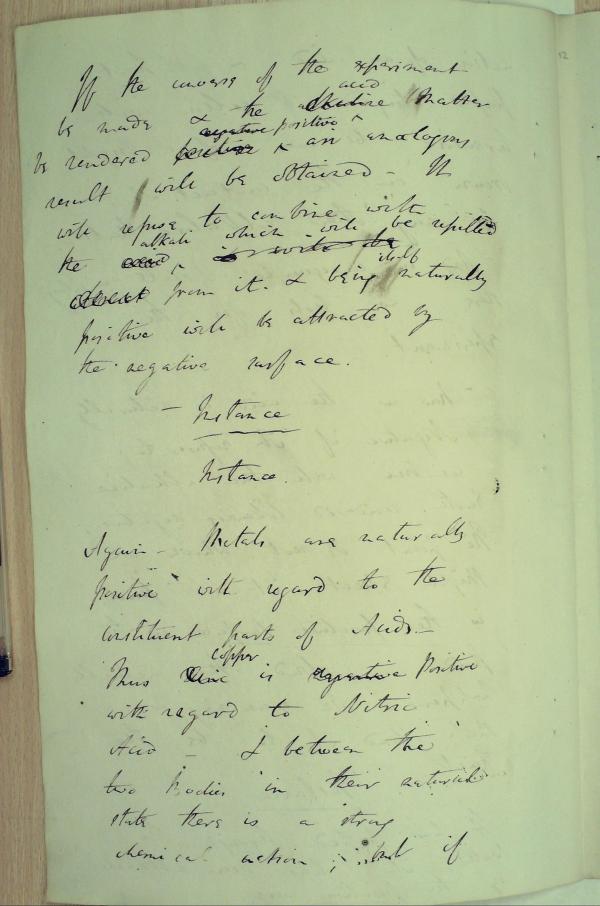 If the converse of the experiment
be made & the alkaline acid matter
be rendered positive negative positive an analogous
result will be obtained - It
will refuse to combine with
the acid alkali which will be repelled
from it. & being itself naturally
positive will be attracted by
the negative surface.
- Instance
Instance.
Again - Metals are naturally
positive with regard to the
constituent parts of Acids -
Thus Zinc copper is negative Positive
with regard to Nitric
Acid - & between the
two Bodies in their natural
state there is a strong
chemical action ; but if